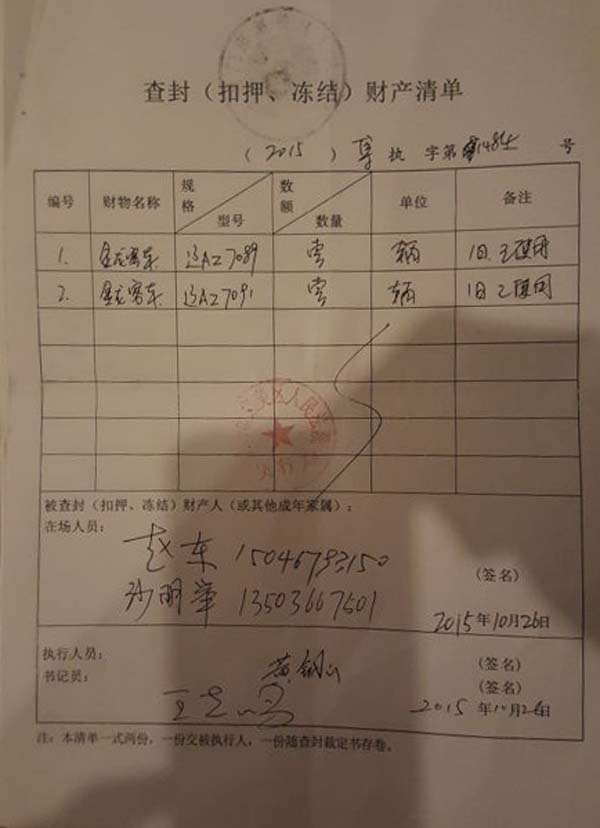 查封（扣押、冻结）财产清单
（2015）执 字第 号
编号 财物名称 规格 型号 数额 数量 单位 备注
1. 金龙客车 辽AZ7089 壹 辆 旧、已使用
2. 金龙客车 辽AZ7091 壹 辆 旧、已使用
人民法院
被查封（扣押、冻结）财产人（或其他成年家属）：
在场人员：
赵东
（签名）
13503667501
2015年10月26日
执行人员：
（签名）
书记员：
（签名）
2015年10月26日
注：本清单一式两份，一份交被执行人，一份随查封裁定书存卷。